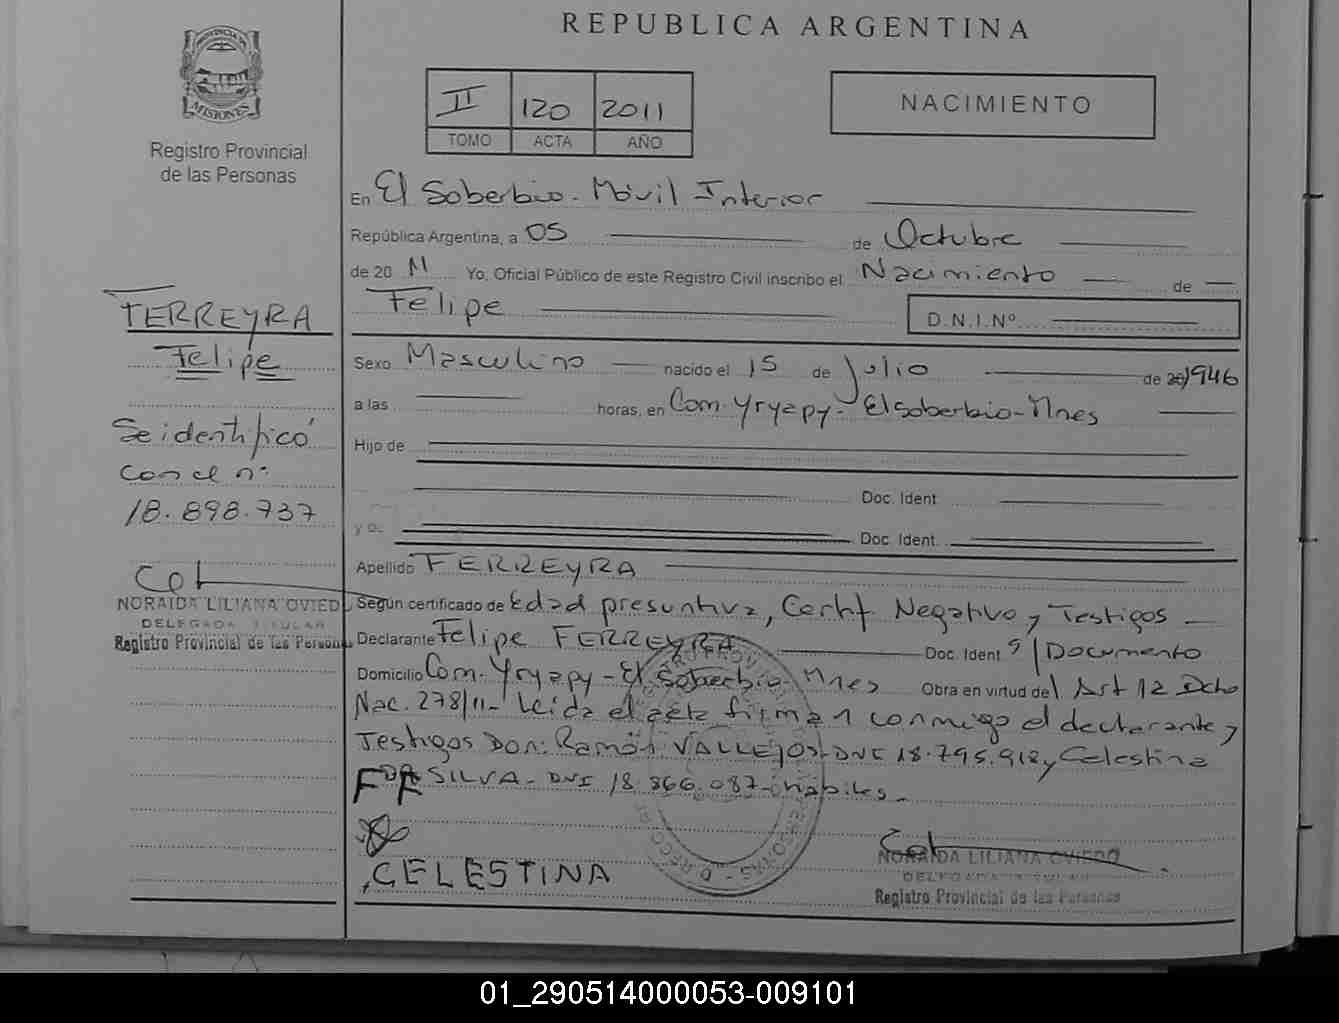 REPUBLICA ARGENTINA
PROVINCIA DE
MISIONES
Registro Provincial
de las Personas
II 120 2011
TOMO ACTA AÑO
NACIMIENTO
En El Soberbio - Móvil Interior
República Argentina, a 05 de Octubre
de 20 11 Yo, Oficial Público de este Registro Civil inscribo el Nacimiento de
Felipe D.N.I.Nº
FERREYRA
Felipe
Se identificó
con el nº
18.898.737
NORAIDA LILIANA OVIEDO
DELEGADA TITULAR
Registro Provincial de las Personas
Sexo Masculino nacido el 15 de Julio de 1946
a las horas, en Com. Yryapy - El Soberbio - Mnes
Hijo de
Doc. Ident.
y de Doc. Ident.
Apellido FERREYRA
Según certificado de Edad presuntiva, Certif. Negativo y Testigos
Declarante Felipe FERREYRA Doc. Ident. S/Documento
Domicilio Com. Yryapy - El Soberbio - Mnes Obra en virtud del Art 12 Dcto
Nac. 278/11 - Leida el acta firman conmigo el declarante y
Testigos Don: Ramón VALLEJOS - DNI 18.795.918 y Celestina
DA SILVA - DNI 18.866.087 - hábiles -
FF
CELESTINA
NORAIDA LILIANA OVIEDO
DELEGADA TITULAR
Registro Provincial de las Personas
01_290514000053-009101